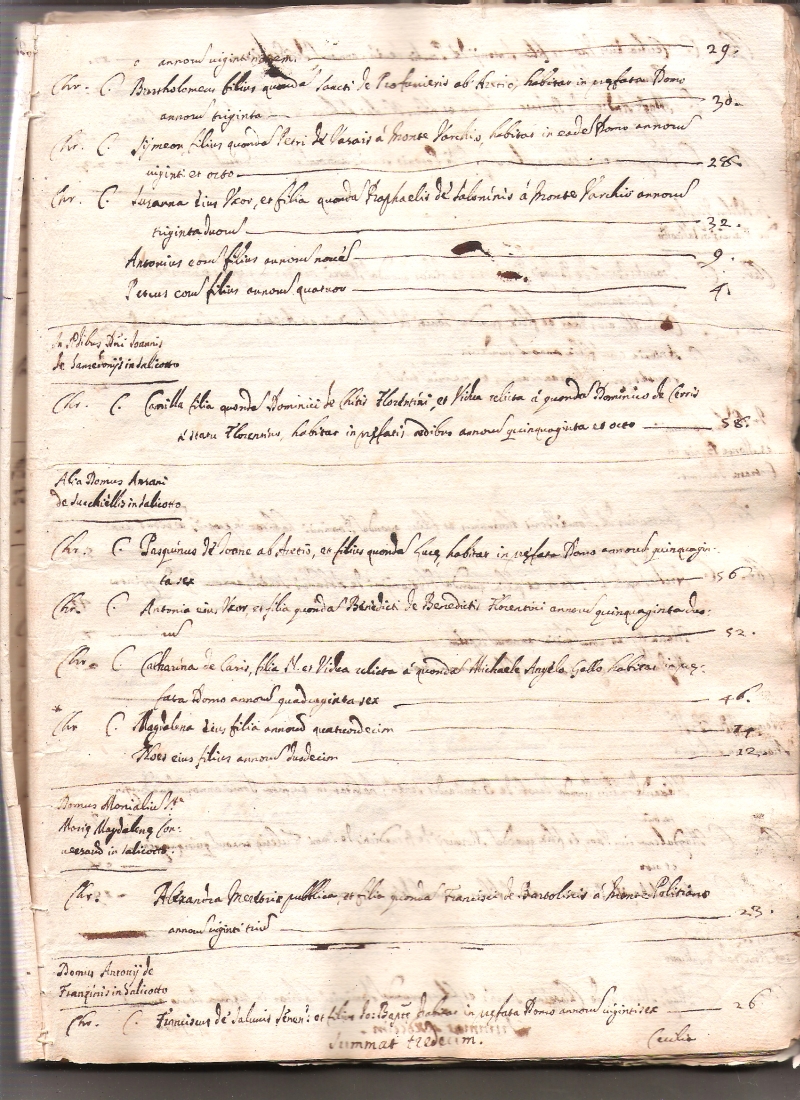 annorum viginti novem. 29.
Chr. C. Bartholomeus filius quondam Sancti de ab Aretio, habitat in Domo
annorum triginta 30.
Chr. C. Simeon filius quondam Petri de Varais á Monte Varchio, habitat in eadem Domo annorum
viginti et octo 28.
Chr. C. Susanna eius Uxor, et filia quondam Raphaelis de á Monte Varchio annorum
triginta duorum 32.
Antonius eorum filius annorum novem 9.
Petrus eorum filius annorum quatuor 4.
In Edibus Dni Ioannis
de in Salicotto
Chr. C. Camilla filia quondam Dominici de Florentini, et Vidua relicta á quondam Dominico de Cerris
Statu Florentino, habitat in edibus annorum quinquaginta et octo 58.
Alia Domus Ansani
de in Salicotto
Chr. C. Pasquinus de ab Aretio, et filius quondam Luce, habitat in Domo annorum quinquagin-
ta sex 56
Chr. C. Antonia eius Uxor, et filia quondam Benedicti de Benedictis Florentini annorum quinquaginta duo-
rum 52.
Chr. C. Catharina de Caris, filia N. et Vidua relicta á quondam Michaele Angelo Gallo habitat in
fata Domo annorum quadraginta sex 46.
Chr C. Magdalena eius filia annorum quatuordecim 14.
eius filius annorum duodecim 12.
Domus Monialium Ste
Marie Magdalene Con-
in Salicotto
Chr. Alexandra Meretrix publica, et filia quondam Francisci de á Monte Politiano
annorum viginti trium 23.
Domus Antonij de
Franzinis in Salicotto
Chr. C. Franciscus de Salvinis Senen: et filius Io: Bapte habitat in Domo annorum viginti sex 26
Summat tredecim.
Cecilia